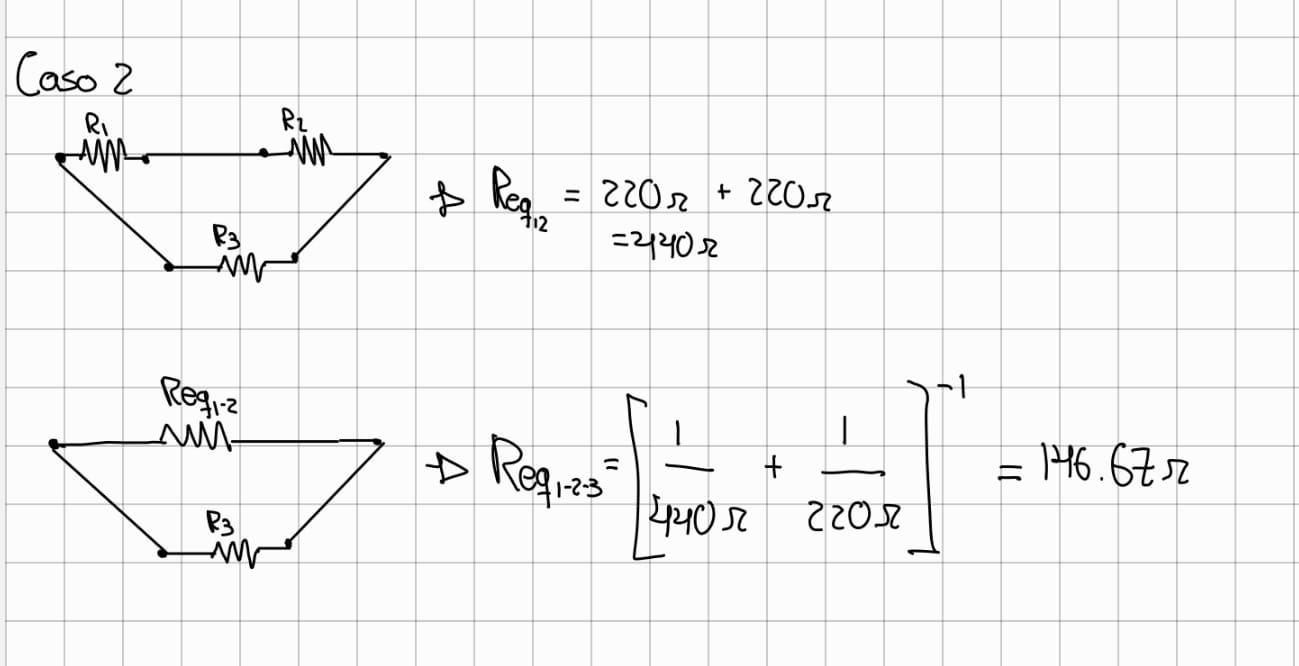 Caso 2
R1 R2
Req12 = 220Ω + 220Ω
R3
=440Ω
Req1-2
Req1-2-3 = [1/440Ω + 1/220Ω]^-1 = 146.67Ω
R3